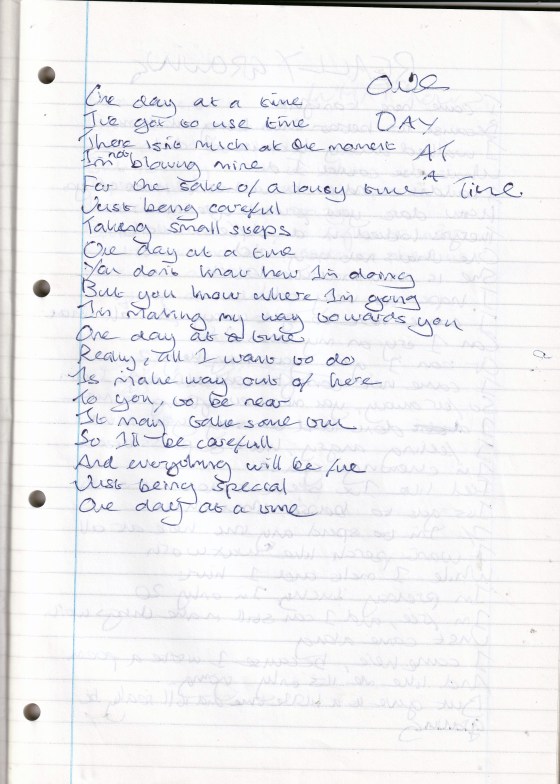 One
DAY
AT
A
Time
One day at a time
I've got to use time
There isn't much at the moment
I'm not blowing mine
For the sake of a lousy time
Just being careful
Taking small steps
One day at a time
You don't know how I'm doing
But you know where I'm going
I'm making my way towards you
One day at a time
Really, all I want to do
Is make way out of here
To you, to be near
It may take some time
So I'll be carefull
And everything will be fine
Just being special
One day at a time